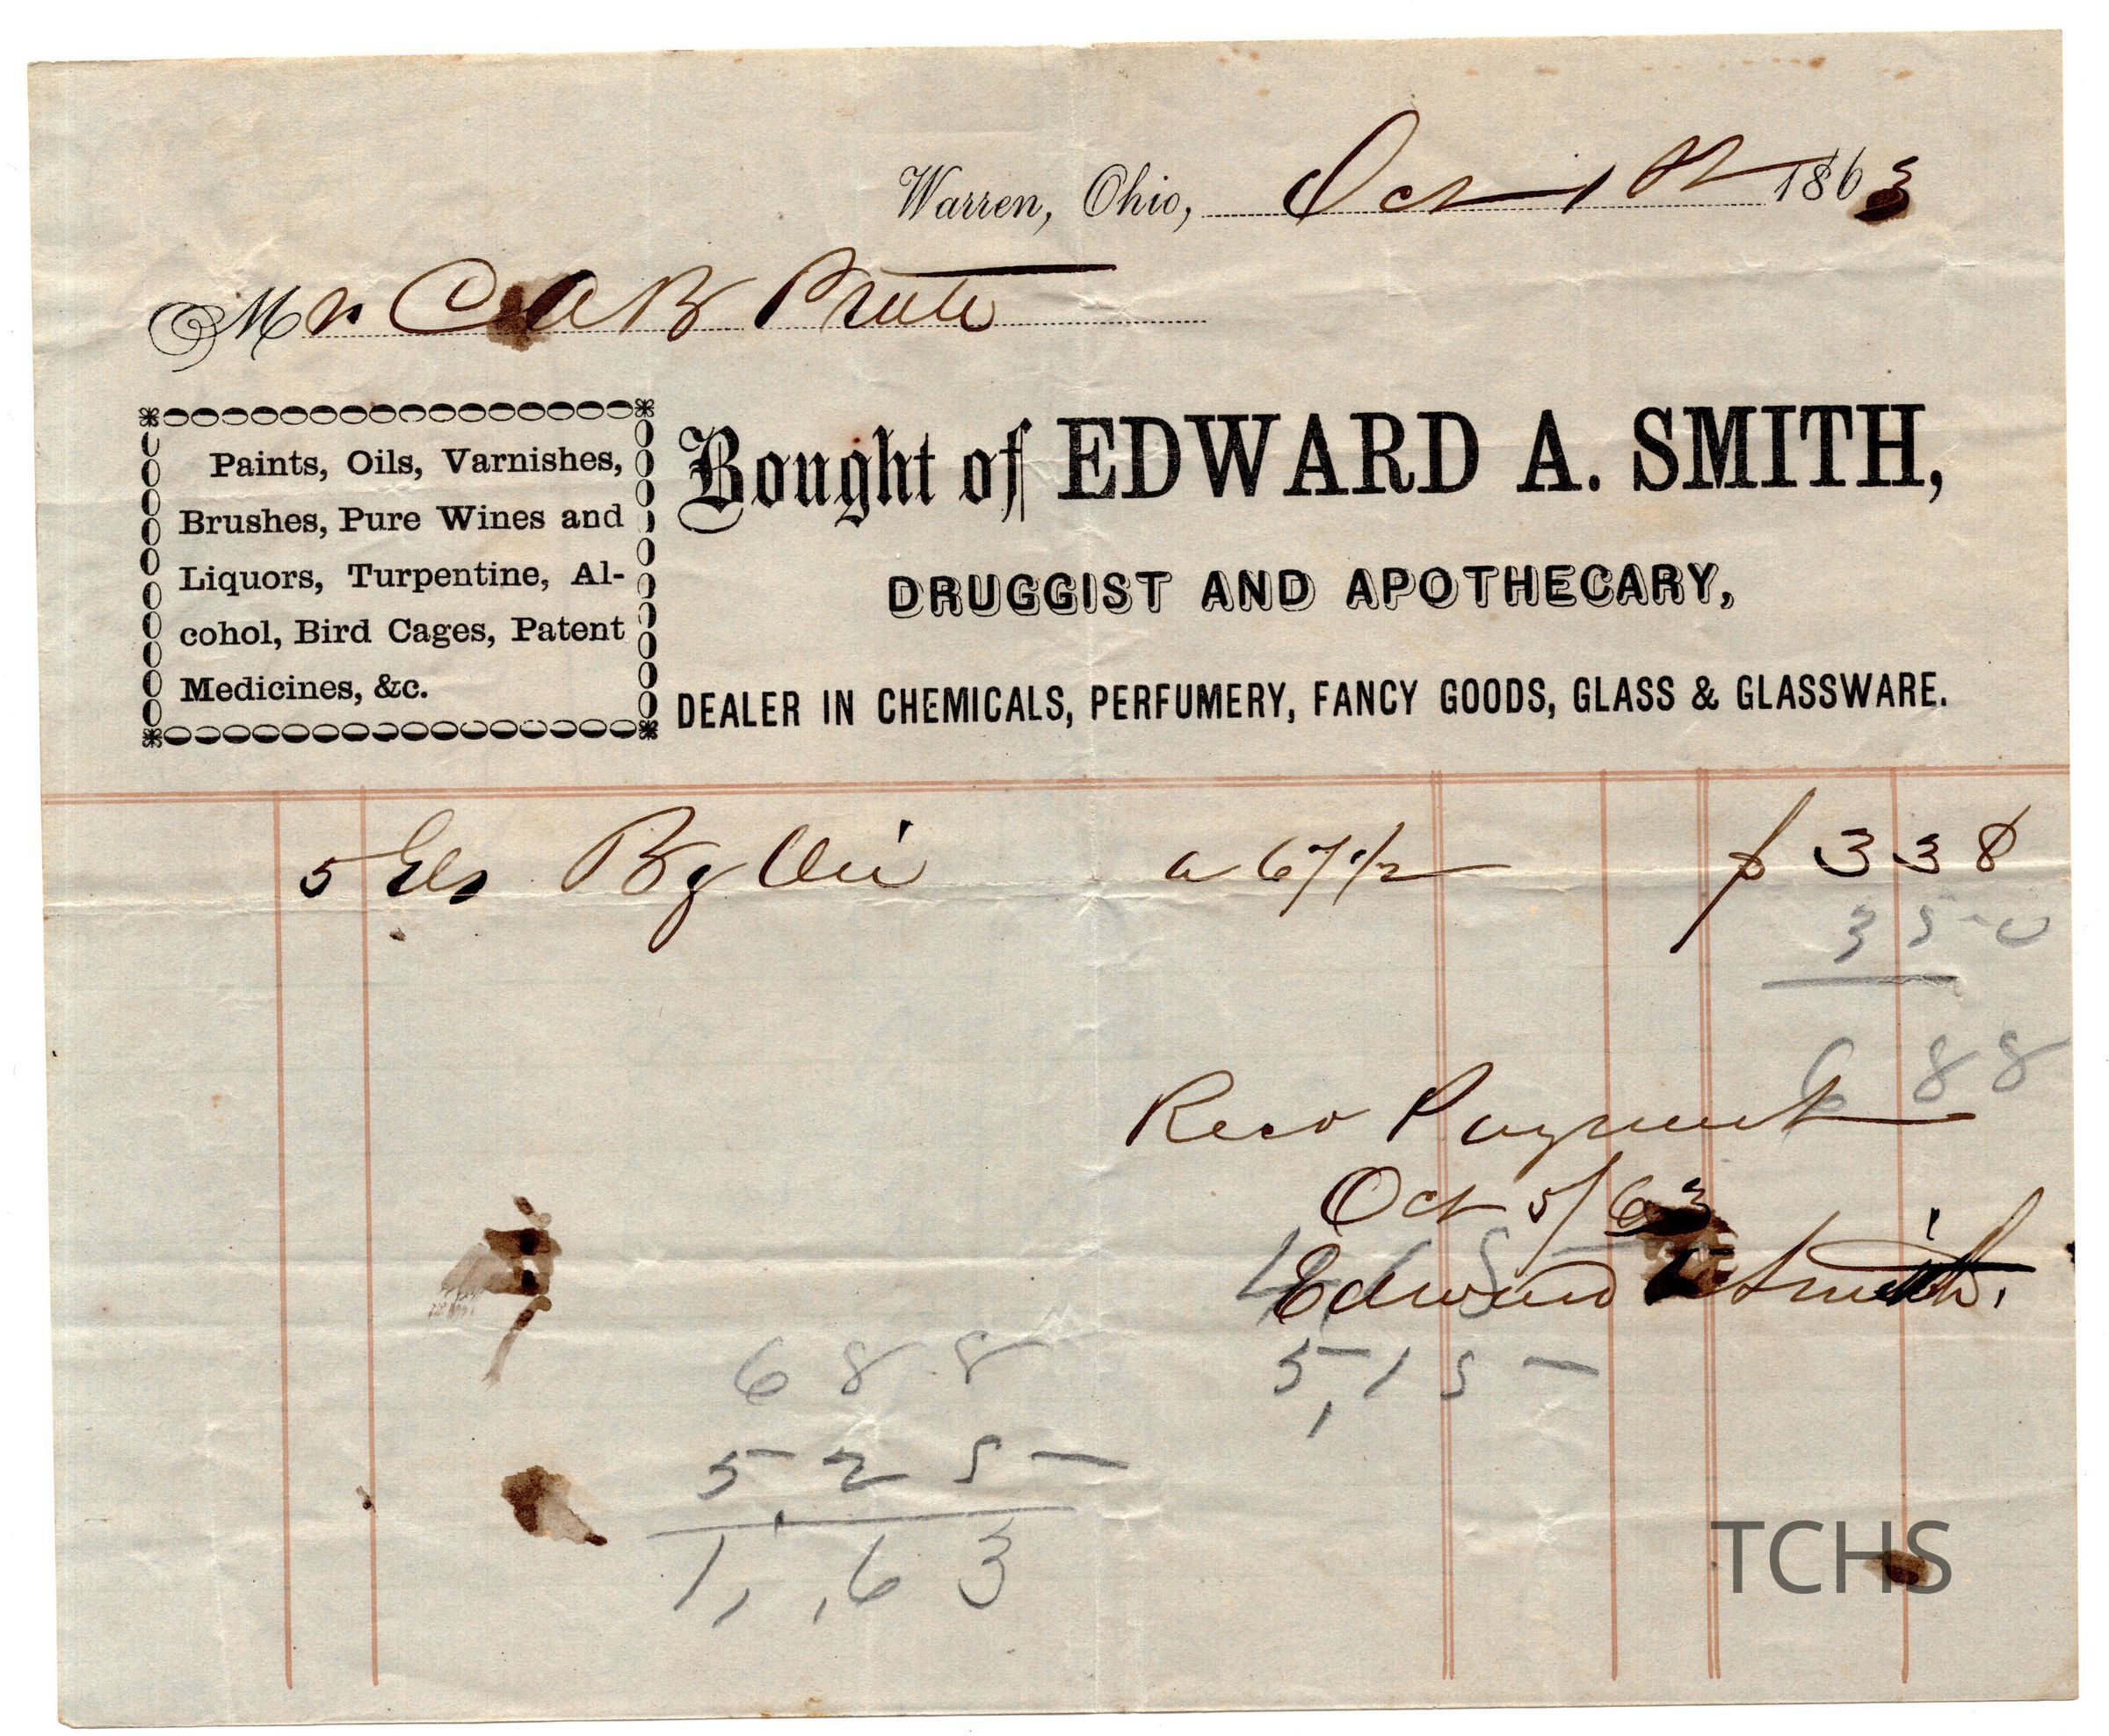 Warren, Ohio, Oct 1st 1863
Mr C A B Pratt
Paints, Oils, Varnishes,
Brushes, Pure Wines and
Liquors, Turpentine, Al-
cohol, Bird Cages, Patent
Medicines, &c.
Bought of EDWARD A. SMITH,
DRUGGIST AND APOTHECARY,
DEALER IN CHEMICALS, PERFUMERY, FANCY GOODS, GLASS & GLASSWARE.
5 Gls Oil a 67 1/2 $ 3 38
3 50
6 88
Recd Payment
Oct 5/63
Edward Smith.
6 8 8
5,15
5.25
1,.63
TCHS